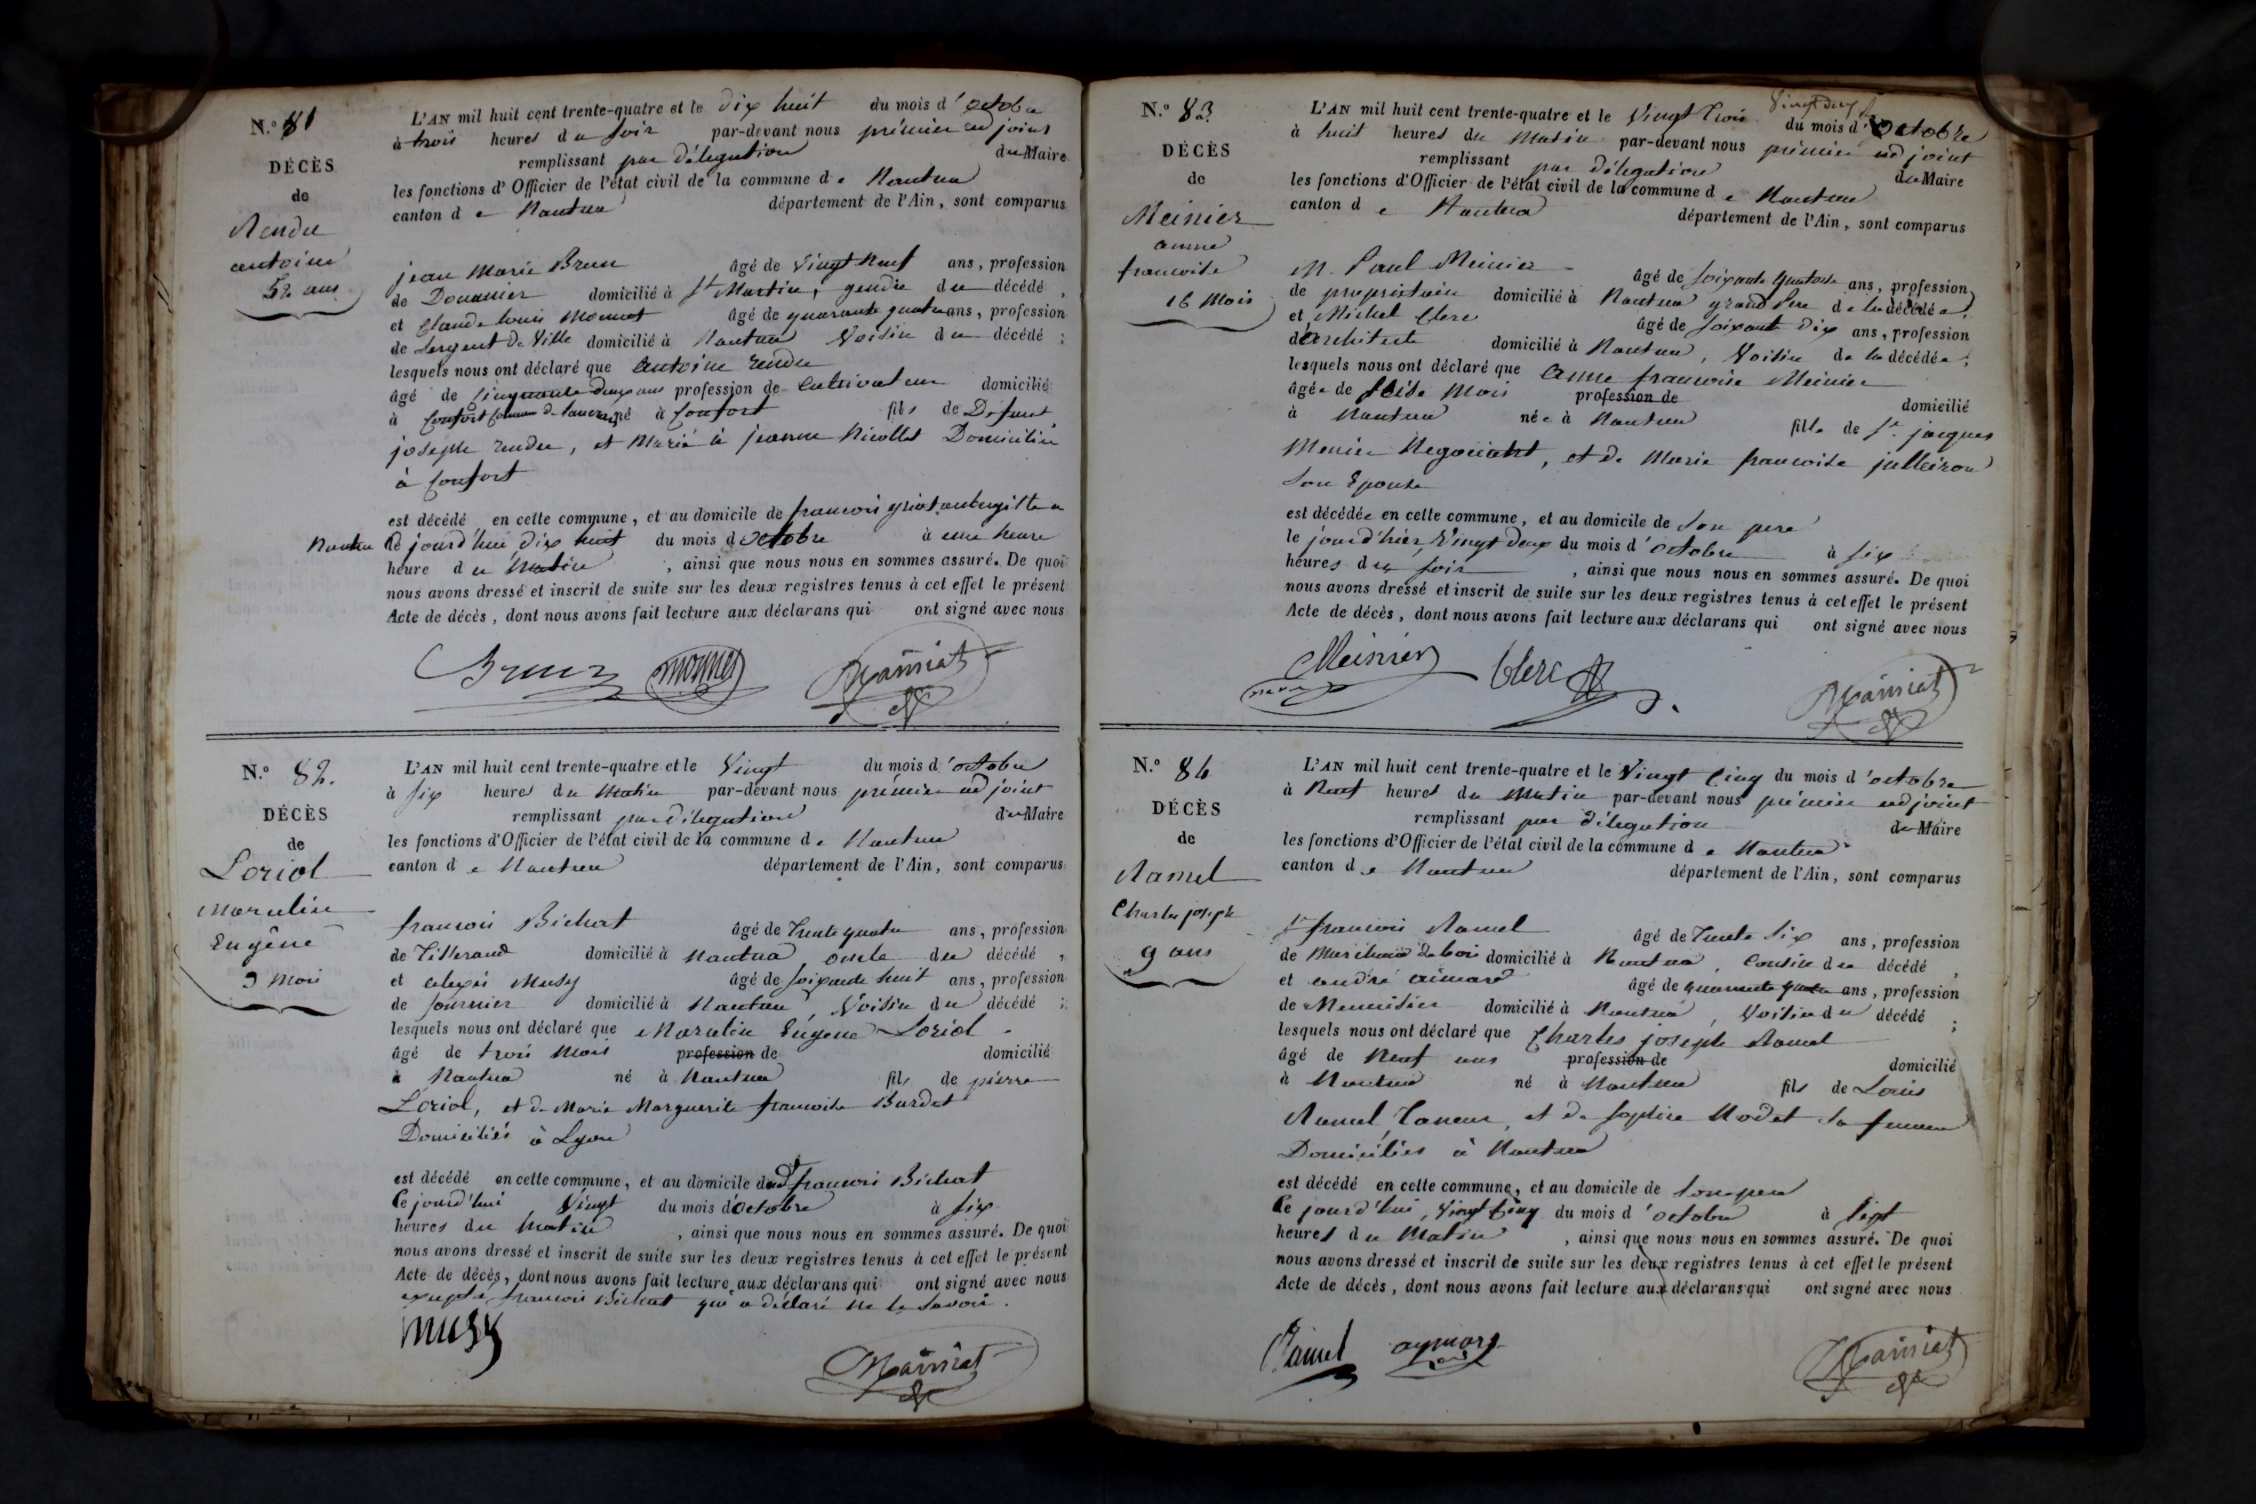 N.° 81
DÉCÈS
de
Rendu
antoine
52 ans
L'AN mil huit cent trente-quatre et le dix huit du mois d'octobre
à trois heures du soir par-devant nous prémier adjoint
remplissant par délégation du Maire
les fonctions d'Officier de l'état civil de la commune de Nantua
canton de Nantua département de l'Ain, sont comparus
jean Marie Brun âgé de Vingt Neuf ans, profession
de Douanier domicilié à St Martin, gendre du décédé,
et Claude Louis Monnet âgé de quarante quatre ans, profession
de Sergent de Ville domicilié à Nantua Voisin du décédé;
lesquels nous ont déclaré que antoine rendu
âgé de Cinquante deux ans profession de Cultivateur domicilié
à Confort Commune de né à Confort fils de Défunt
joseph rendu, et Marié à jeanne Nicollet Domiciliée
à Confort
est décédé en cette commune, et au domicile de francois aubergiste a
Nantua Ce jourd'hui dix huit du mois d'octobre à une heure
heure du Matin, ainsi que nous nous en sommes assuré. De quoi
nous avons dressé et inscrit de suite sur les deux registres tenus à cet effet le présent
Acte de décès, dont nous avons fait lecture aux déclarans qui ont signé avec nous
Brun monnet
N.° 82.
DÉCÈS
de
Loriol
Marulin
Eugêne
3 Mois
L'AN mil huit cent trente-quatre et le Vingt du mois d'octobre
à six heures du Matin par-devant nous prémier adjoint
remplissant par délégation du Maire
les fonctions d'Officier de l'état civil de la commune de Nantua
canton de Nantua département de l'Ain, sont comparus
francois Bichat âgé de Trente quatre ans, profession
de Tisserand domicilié à Nantua oncle du décédé,
et alexis Musy âgé de soixante huit ans, profession
de fournier domicilié à Nantua, Voisin du décédé;
lesquels nous ont déclaré que Marulin Eugene Loriol
âgé de trois Mois profession de domicilié
à Nantua né à Nantua fils de pierre
Loriol, et de Marie Marguerite francoise Burdet
Domiciliés à Lyon
est décédé en cette commune, et au domicile dud. francois Bichat
Ce jourd'hui Vingt du mois d'octobre à six
heures du Matin, ainsi que nous nous en sommes assuré. De quoi
nous avons dressé et inscrit de suite sur les deux registres tenus à cet effet le présent
Acte de décès, dont nous avons fait lecture aux déclarans qui ont signé avec nous
excepté francois Bichat qui a déclaré ne le savoir.
musy
N.° 83
DÉCÈS
de
Meinier
anne
francoise
16 Mois
L'AN mil huit cent trente-quatre et le Vingt Trois du mois d'Octobre
à huit heures du Matin par-devant nous prémier adjoint
remplissant par délégation du Maire
les fonctions d'Officier de l'état civil de la commune de Nantua
canton de Nantua département de l'Ain, sont comparus
M. Paul Meinier âgé de soixante quatorze ans, profession
de propriétaire domicilié à Nantua grand Pere de la décédée,
et Michel Clerc âgé de soixante dix ans, profession
d'architecte domicilié à Nantua, Voisin de la décédée;
lesquels nous ont déclaré que Anne francoise Meinier
âgée de seize Mois profession de domicilié
à Nantua née à Nantua fille de Sr jacques
Meinier Negociant, et de Marie francoise julleron
son Epouse
est décédée en cette commune, et au domicile de son pere
le jourd'hier Vingt deux du mois d'octobre à six
heures du soir, ainsi que nous nous en sommes assuré. De quoi
nous avons dressé et inscrit de suite sur les deux registres tenus à cet effet le présent
Acte de décès, dont nous avons fait lecture aux déclarans qui ont signé avec nous
Meinier Clerc
N.° 84
DÉCÈS
de
Ramel
Charles joseph
9 ans
L'AN mil huit cent trente-quatre et le Vingt Cinq du mois d'octobre
à Neuf heures du Matin par-devant nous prémier adjoint
remplissant par délégation du Maire
les fonctions d'Officier de l'état civil de la commune de Nantua
canton de Nantua département de l'Ain, sont comparus
Sr francois Ramel âgé de Trente six ans, profession
de Marchand de bois domicilié à Nantua, Cousin du décédé,
et andré aimard âgé de quarante quatre ans, profession
de Menuisier domicilié à Nantua, Voisin du décédé;
lesquels nous ont déclaré que Charles joseph Ramel
âgé de Neuf ans profession de domicilié
à Nantua né à Nantua fils de Louis
Ramel Taneur, et de sophie Modet sa femme
Domiciliés à Nantua
est décédé en cette commune, et au domicile de son pere
Ce jourd'hui, Vingt Cinq du mois d'octobre à sept
heures du Matin, ainsi que nous nous en sommes assuré. De quoi
nous avons dressé et inscrit de suite sur les deux registres tenus à cet effet le présent
Acte de décès, dont nous avons fait lecture aux déclarans qui ont signé avec nous
Ramel aymard